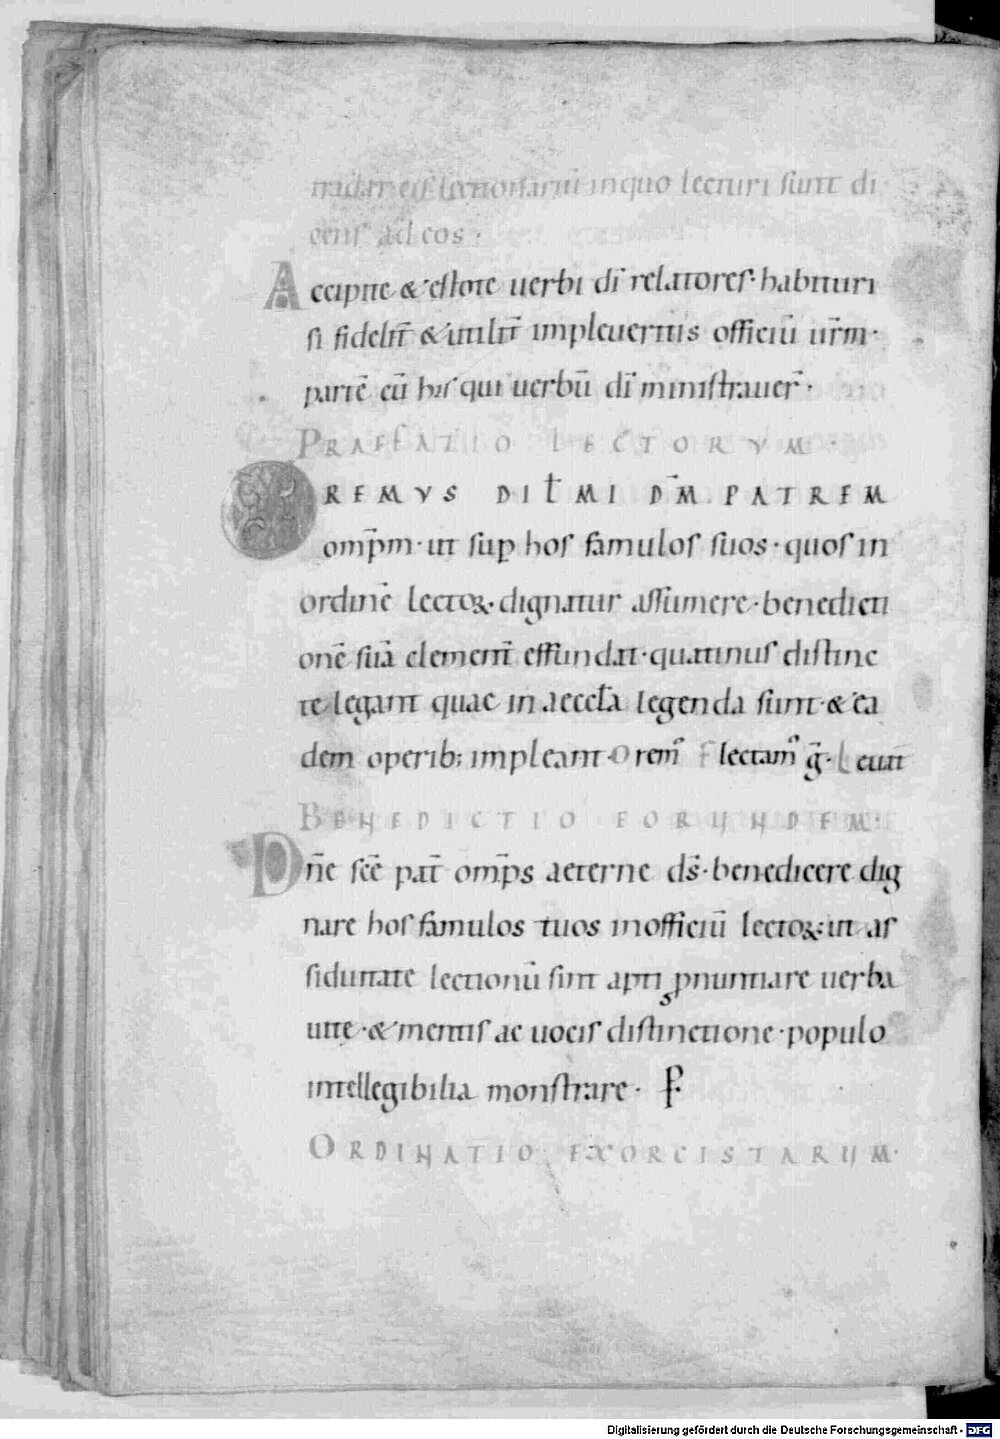 tradat eis lectionariū inquo lecturi sunt di
cens ad eos ·
Accipite & estote uerbi dī relatores· habituri
si fidelit̄ & utilit̄ impleueritis officiū ur̄m·
partē cū his qui uerbū dī ministrauer̄ ·
PRAEFATIO LECTORVM ·
OREMVS DILMI DM̄ PATREM
om̄pm · ut sup hos famulos suos · quos in
ordinē lectoꝝ· dignatur assumere · benedicti
onē suā clementt̄ effundat· quatinus distinc
te legant quae in aeccła legenda sunt· & ea
dem operib; impleant· Orem̄ Flectam̄ ḡ· Leuat̄
BENEDICTIO EORUNDEM·
Dn̄e sc̄e pat̄ om̄ps aeterne ds̄· benedicere dig
nare hos famulos tuos inofficiū lectoꝝ· ut as
siduitate lectionū sint apti ꝓnuntiare uerba
uitę · & mentis ac uocis distinctione · populo
intellegibilia monstrare · P
ORDINATIO EXORCISTARUM·
Digitalisierung gefördert durch die Deutsche Forschungsgemeinschaft - DFG